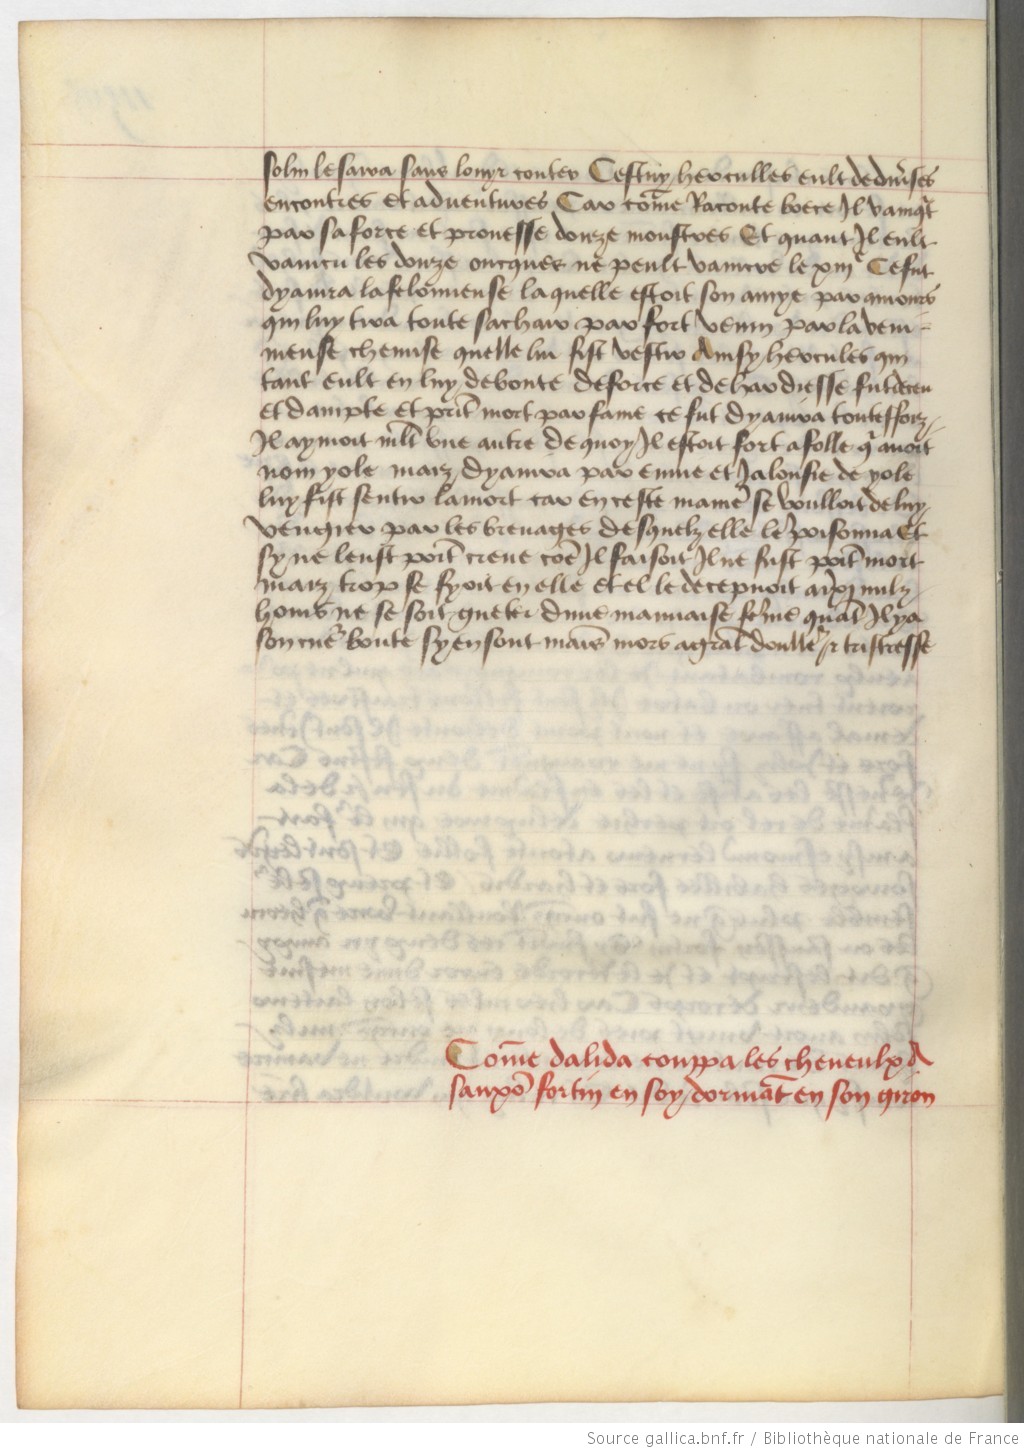 solin le saura sans lonyr conter Cestuy herculles eult de divses
encontres et adventures Car come Raconte boece Il vamqt
par sa force et prouesse douze monstres Et quant Il eult
vaincu les douze oncques ne peult vaincre le xiii Ce fut
dyanira la felonneuse laquelle estoit son amye par amours
qui luy tira toute sa char par fort venin par la veni-
meuse chemise quelle lui fist vestir Ainsy hercules qui
tant eult en luy de bonte de force et de hardiesse fut deceu
et dampte et prit mort par fame ce fut dyanira touteffoiz
Il aymoit mlt une autre de quoy Il estoit fort a folle q avoit
nom yole maiz dyanira par envie et Jalousie de yole
luy fist sentir la mort car en ceste manie se voulloit de luy
vengier par les brevages desquelz elle le poisonna Et
sy ne leust point creue coe Il faisoit Il ne fust point mort
maiz trop se fyoit en elle et el le decepvoit nulz
homs ne se soit gueter dune mauvaise feme quat Il y a
son cue boute sy en sont mais mors a grat doulle et tristresse
Come dalida couppa les cheveulx d
sanxo fortin en soy dormat en son giron
Source gallica.bnf.fr / Bibliothèque nationale de France